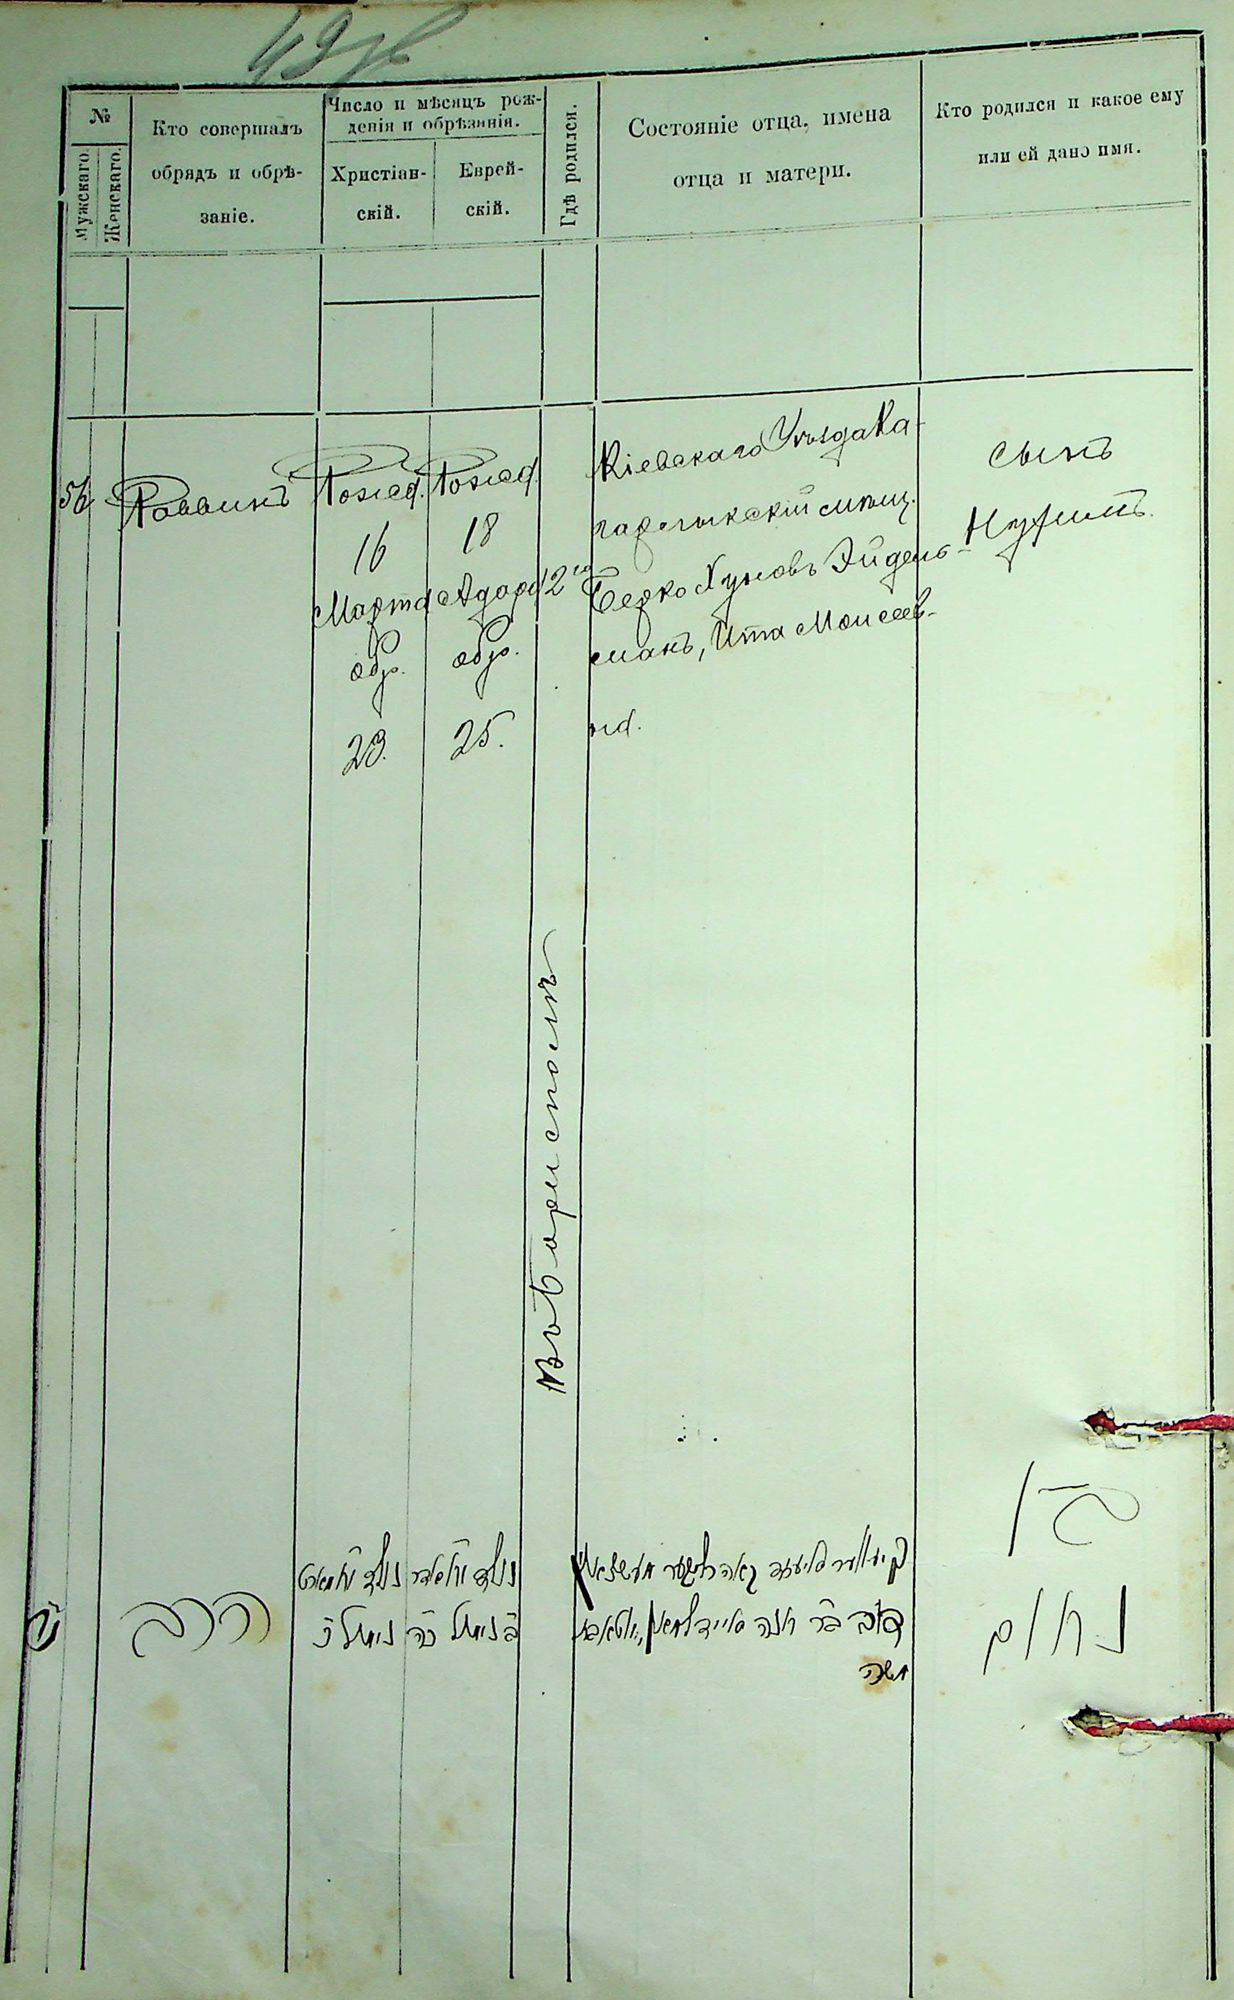 №
Мужскаго.
Женскаго.
Кто совершалъ
обрядъ и обрѣ-
заніе.
Число и мѣсяцъ рож-
денія и обрѣзанія.
Христіан-
скій.
Еврей-
скій.
Гдѣ родился.
Состояніе отца, имена
отца и матери.
Кто родился и какое ему
или ей дано имя.
56
Раввинъ
Рожед.
16
Марта
обр.
23.
Рожед.
18
Адара 2го
обр.
25.
въ Борисполѣ
Кіевскаго Уѣзда Ка-
гарлыкскій мѣщ.
Берко Хуновъ Эйдель-
манъ, Ита Моисеев-
на.
сынъ
Нухимъ.
הרב
משה
בן
נחום